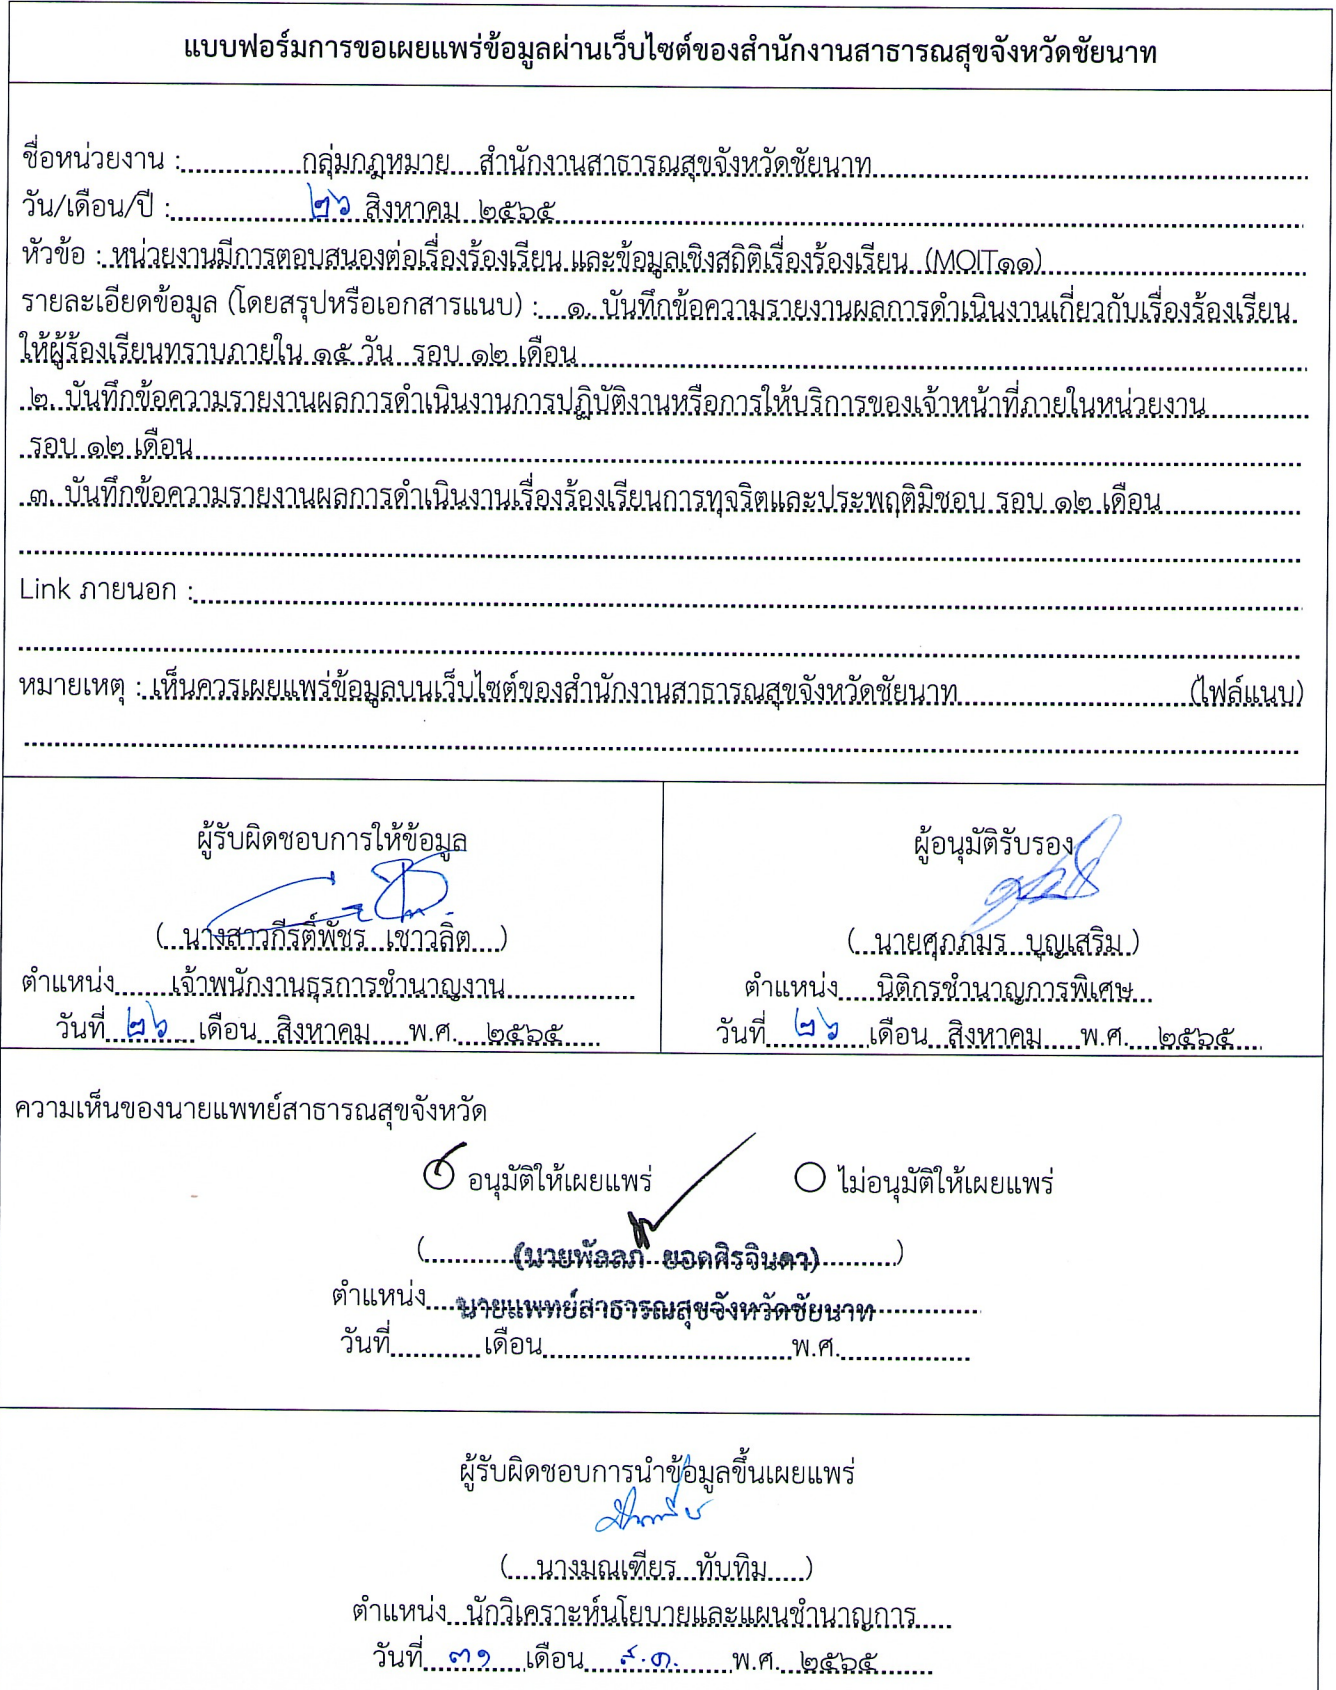 แบบฟอร์มการขอเผยแพร่ข้อมูลผ่านเว็บไซต์ของสำนักงานสาธารณสุขจังหวัดชัยนาท
ชื่อหน่วยงาน : กลุ่มกฎหมาย สำนักงานสาธารณสุขจังหวัดชัยนาท
วัน/เดือน/ปี : ๒๖ สิงหาคม ๒๕๖๕
หัวข้อ : หน่วยงานมีการตอบสนองต่อเรื่องร้องเรียน และข้อมูลเชิงสถิติเรื่องร้องเรียน (MOIT๑๑)
รายละเอียดข้อมูล (โดยสรุปหรือเอกสารแนบ) : ๑. บันทึกข้อความรายงานผลการดำเนินงานเกี่ยวกับเรื่องร้องเรียน
ให้ผู้ร้องเรียนทราบภายใน ๑๕ วัน รอบ ๑๒ เดือน
๒. บันทึกข้อความรายงานผลการดำเนินงานการปฏิบัติงานหรือการให้บริการของเจ้าหน้าที่ภายในหน่วยงาน
รอบ ๑๒ เดือน
๓. บันทึกข้อความรายงานผลการดำเนินงานเรื่องร้องเรียนการทุจริตและประพฤติมิชอบ รอบ ๑๒ เดือน
Link ภายนอก :
หมายเหตุ : เห็นควรเผยแพร่ข้อมูลบนเว็บไซต์ของสำนักงานสาธารณสุขจังหวัดชัยนาท (ไฟล์แนบ)
ผู้รับผิดชอบการให้ข้อมูล
( นางสาวกีรติ์พัชร เชาวลิต )
ตำแหน่ง เจ้าพนักงานธุรการชำนาญงาน
วันที่ ๒๖ เดือน สิงหาคม พ.ศ. ๒๕๖๕
ผู้อนุมัติรับรอง
( นายศุภภมร บุญเสริม )
ตำแหน่ง นิติกรชำนาญการพิเศษ
วันที่ ๒๖ เดือน สิงหาคม พ.ศ. ๒๕๖๕
ความเห็นของนายแพทย์สาธารณสุขจังหวัด
อนุมัติให้เผยแพร่ ไม่อนุมัติให้เผยแพร่
(นายพัลลภ ยอดศิรจินดา)
ตำแหน่ง นายแพทย์สาธารณสุขจังหวัดชัยนาท
วันที่ เดือน พ.ศ.
ผู้รับผิดชอบการนำข้อมูลขึ้นเผยแพร่
( นางมณเฑียร ทับทิม )
ตำแหน่ง นักวิเคราะห์นโยบายและแผนชำนาญการ
วันที่ ๓๑ เดือน ส.ค. พ.ศ. ๒๕๖๕